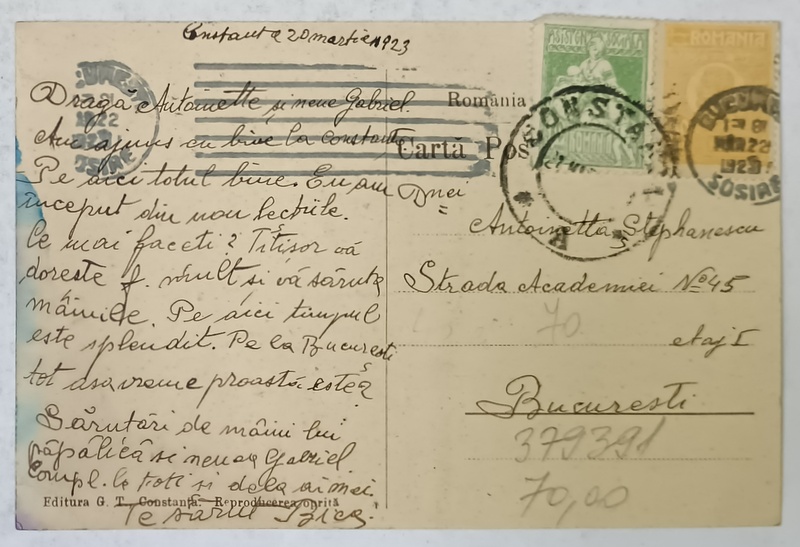 Constanta 20 martie 1923
Dragă Antoinette și nene Gabriel.
Am ajuns cu bine la Constanta
Pe aici totul bine. Eu am
început din nou lecțiile.
Ce mai faceti? Titișor vă
dorește f. mult și vă săruta
mâinile. Pe aici timpul
este splendit. Pe la Bucuresti
tot asa vreme proastă este?
Sărutări de mâini lui
păpălică si nenea Gabriel
Compl. la toti si dela ai mei.
Te sărut
Editura G. T. Constanța. Reproducerea oprită
România
Carta Pos
Dnei
Antoinetta Stephanescu
Strada Academiei No 45
etaj I
Bucuresti
70
379391
70,00
CONSTANTA
BUCUREȘTI
MAR 22
1923
SOSIRE
1922
SOSIRE